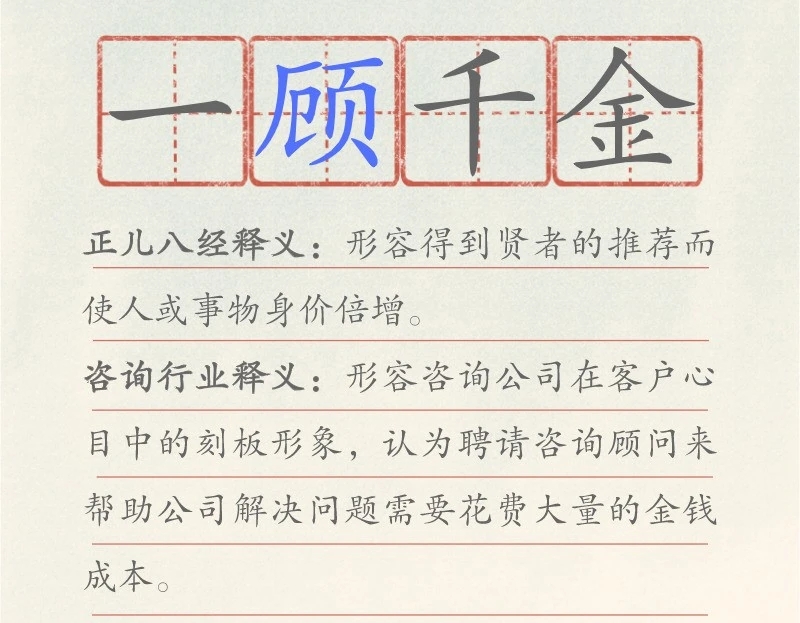 一顾千金
正儿八经释义：形容得到贤者的推荐而
使人或事物身价倍增。
咨询行业释义：形容咨询公司在客户心
目中的刻板形象，认为聘请咨询顾问来
帮助公司解决问题需要花费大量的金钱
成本。